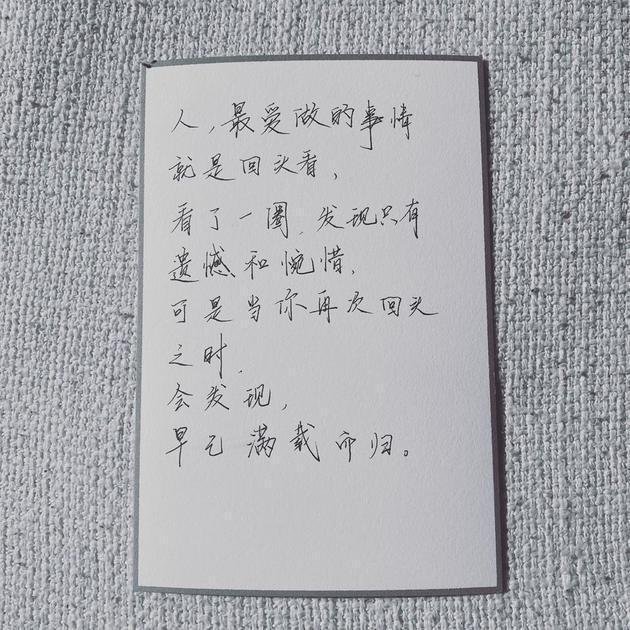 人,最爱做的事情
就是回头看,
看了一圈,发现只有
遗憾和惋惜,
可是当你再次回头
之时,
会发现,
早已满载而归。